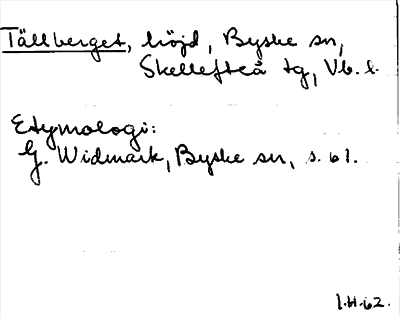 Tällberget, höjd, Byske sn,
Skellefteå tg, Vb. l.
Etymologi:
G. Widmark, Byske sn, s. 61.